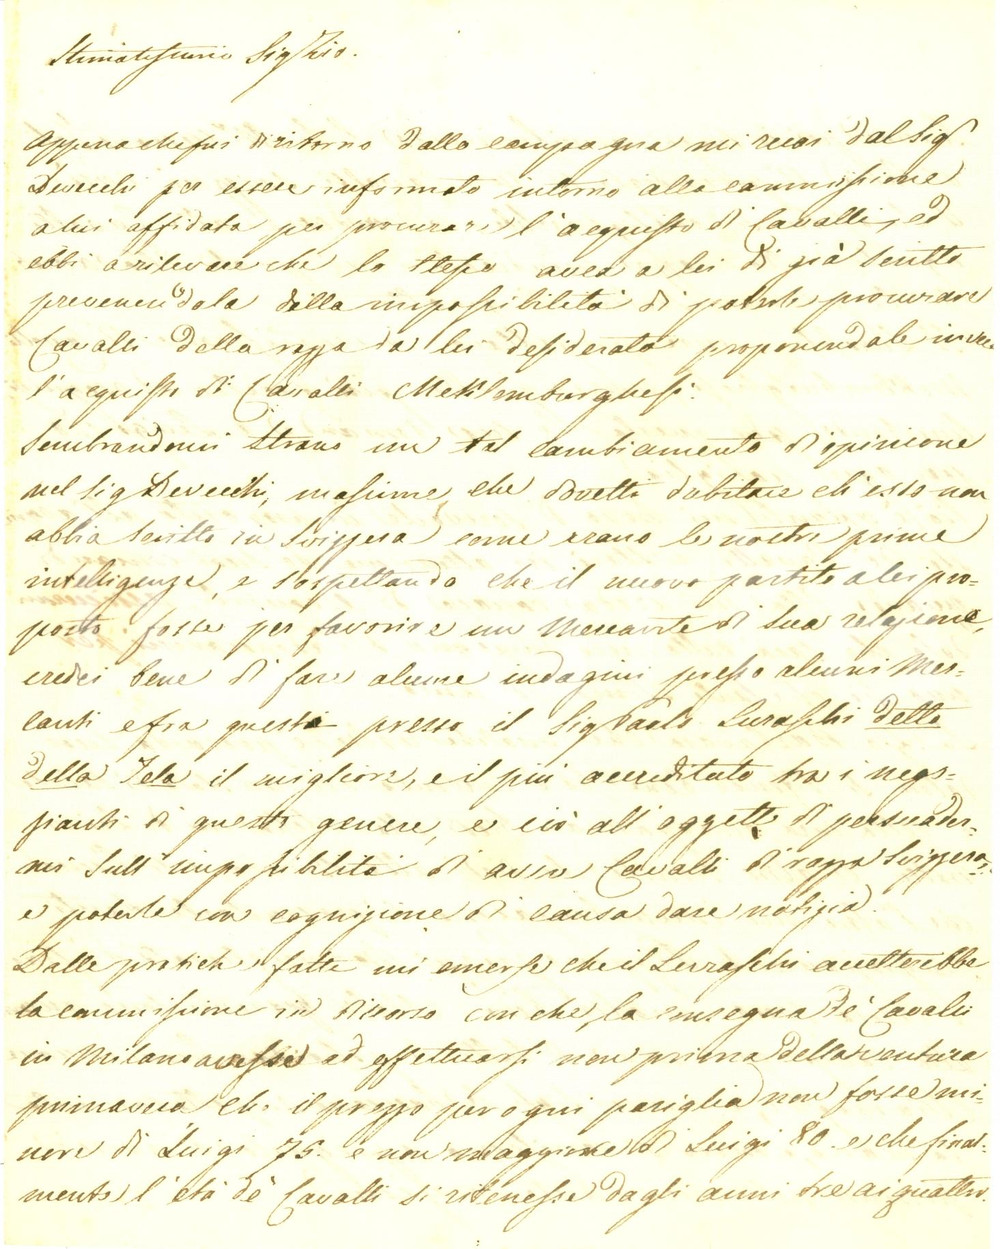 Stimatissimo Sig Zio.
Appena che fui di ritorno dalla campagna mi recai dal Sig.
Devecchi per essere informato intorno alla commissione
a lui affidata per procurare l'acquisto di Cavalli, ed
ebbi a rilevare che lo stesso avea a lei di già scritto
prevenendola della impossibilità di poterle procurare
Cavalli della razza da lei desiderata proponendole invece
l'acquisto di Cavalli Meklemburghesi.
Sembrandomi strano un tal cambiamento d'opinione
nel Sig Devecchi, massime che dovetti dubitare ch'esso non
abbia scritto in Svizzera come erano le nostre prime
intelligenze, e sospettando che il nuovo partito a lei pro=
posto fosse per favorire un Mercante di sua relazione,
credei bene di fare alcune indagini presso alcuni Mer=
canti e fra questi presso il Sig Paolo Suraschi detto
della Tela il migliore, e il più accreditato tra i nego=
zianti di questo genere, e ciò all'oggetto di persuader=
mi sull'impossibilità di aver Cavalli di razza Svizzera,
e poterle con cognizione di causa dare notizia.
Dalle pratiche fatte mi emerse che il Surraschi accetterebbe
la commissione in discorso con che la consegna de' Cavalli
in Milano avesse ad effettuarsi non prima della ventura
primavera che il prezzo per ogni pariglia non fosse mi=
nore di Luigi 75. e non maggiore di Luigi 80. e che final=
mente l'età de' Cavalli si ritenesse dagli anni tre ai quattro.